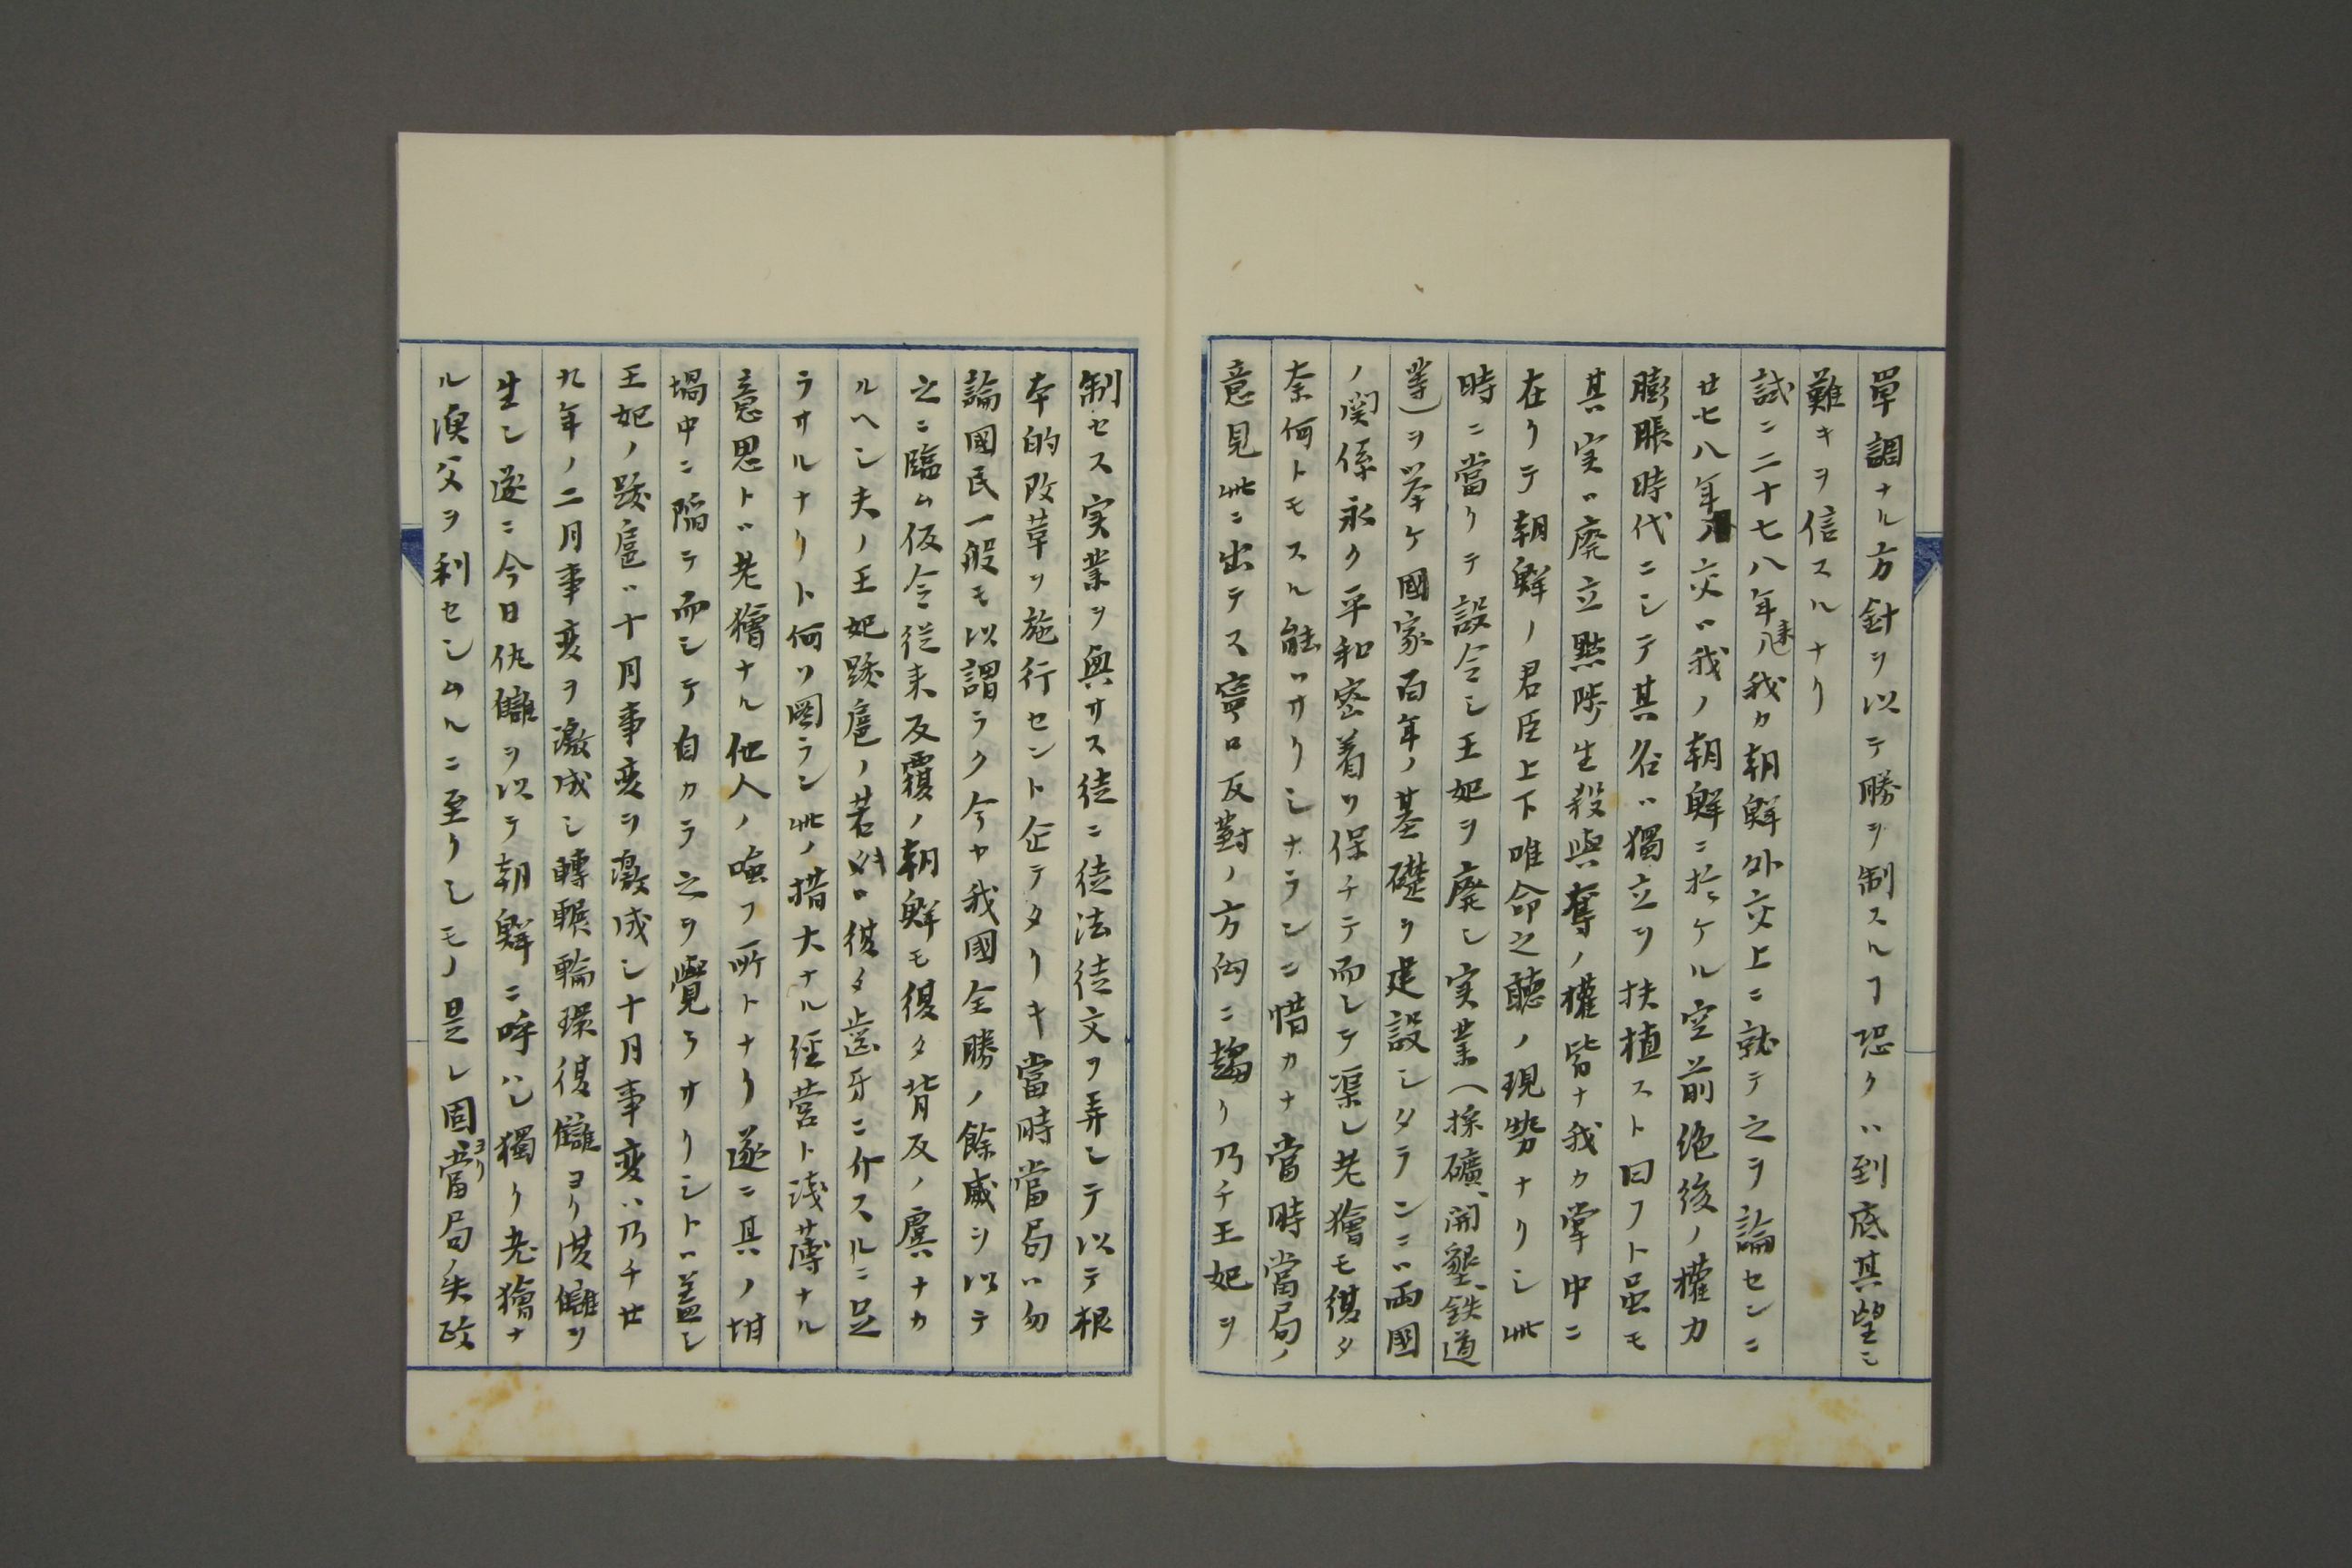 單調ナル方針ヲ以テ勝ヲ制スルヿ恐クハ到底其望ミ
難キヲ信スルナリ
試ニ二十七八年来我カ朝鮮外交上ニ就テ之ヲ論センニ
廿七八年交ハ我ノ朝鮮ニ於ケル空前絶後ノ權力
膨脹時代ニシテ其名ハ獨立ヲ扶植スト曰フト虽モ
其実ハ廃立黜陟生殺與奪ノ權皆ナ我カ掌中ニ
在リテ朝鮮ノ君臣上下唯命之聽ノ現勢ナリシ此
時ニ當リテ設令シ王妃ヲ廃シ実業(採礦、開墾、鉄道
等)ヲ挙ケ國家百年ノ基礎ヲ建設シタランニハ兩國
ノ関係永ク平和密着ヲ保チテ而シテ渠レ老獪モ復タ
奈何トモスル能ハサリシナランニ惜カナ當時當局ノ
意見此ニ出テス寧ロ反對ノ方向ニ趨リ乃チ王妃ヲ
制セス実業ヲ興サス徒ニ徒法徒文ヲ弄シテ以テ根
本的改革ヲ施行セント企テタリキ當時當局ハ勿
論國民一般モ以謂ラク今ヤ我國全勝ノ餘威ヲ以テ
之ニ臨ム仮令従来反覆ノ朝鮮モ復タ背反ノ虞ナカ
ルヘシ夫ノ王妃跋扈ノ若キハ復タ歯牙ニ介スルニ足
ラサルナリト何ソ圖ラン此ノ措大ナル経営ト淺薄ナル
意思トハ老獪ナル他人ノ嗤フ所トナリ遂ニ其ノ坩
堝中ニ陥テ而シテ自カラ之ヲ覺ラサリシトハ蓋シ
王妃ノ跋扈ハ十月事変ヲ激成シ十月事変ハ乃チ廿
九年ノ二月事変ヲ激成シ轉輾輪環復讎ヨリ復讎ヲ
生シ遂ニ今日仇讎ヲ以テ朝鮮ニ呼ハレ獨リ老獪ナ
ル漁父ヲ利セシムルニ至リシモノ是レ固ヨリ當局失政